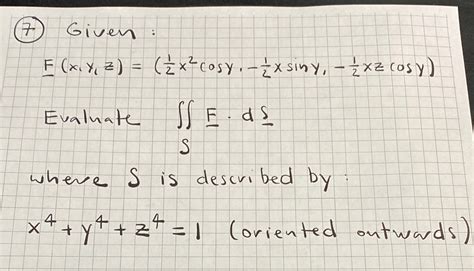 7 Given :
F (x, y, z) = (½x² cos y, -½x sin y, -½xz cos y)
Evaluate ∬ F · dS
S
where S is described by :
x⁴ + y⁴ + z⁴ = 1 (oriented outwards)